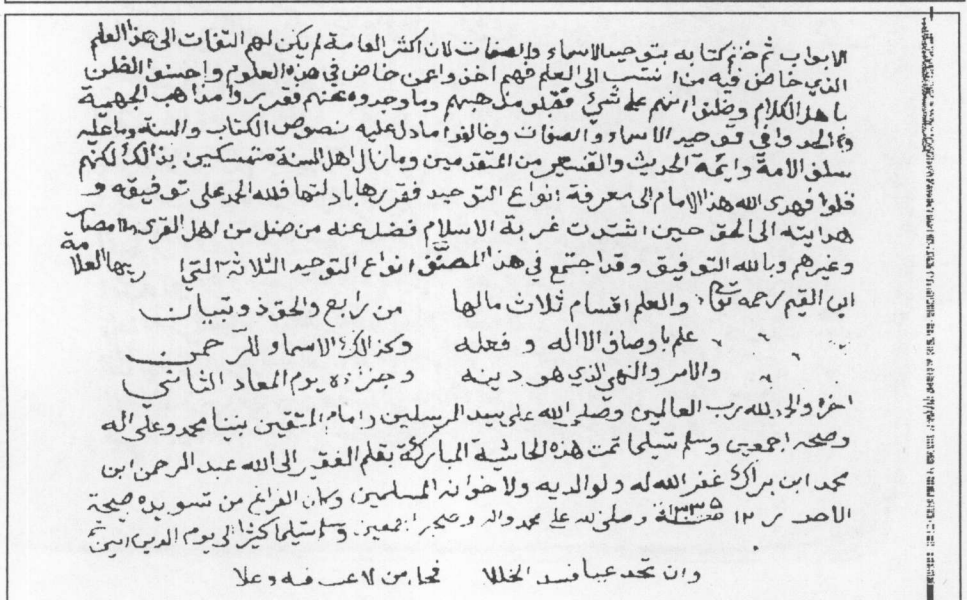 الابواب ثم ختم كتابه بتوحيد الاسماء والصفات لان اكثر العامة لم يكن لهم التفات الى هذا العلم
الذي خاض فيه من انتسب الى العلم فهم اخذوا عمن خاض في هذه العلوم واحسنوا الظن
باهل الكلام وظنوا انهم على شيئ فقبلوا مذهبهم وما وجدوه عنهم فقرروا مذاهب الجهمية
والحدوا في توحيد الاسماء والصفات وخالفوا ما دل عليه نصوص الكتاب والسنة وما عليه
سلف الامة وائمة الحديث والتفسير من المتقدمين وما زال اهل السنة متمسكين بذالك لكنهم
قلوا فهدى الله هذا الامام الى معرفة انواع التوحيد فقررها بادلتها فلله الحمد على توفيقه و
هدايته الى الحق حين اشتدت غربة الاسلام فضل عنه من ضل من اهل القرى والامصار
وغيرهم وبالله التوفيق وقد اجتمع في هذا المصنف انواع التوحيد الثلاثة التي العلامة
ابن القيم رحمه والعلم اقسام ثلاث مالها من رابع والحق ذو تبيان
علم باوصاف الااله وفعله وكذالك الاسماء للرحمن
والامر والنهي الذي هو دينه وجزاءه يوم المعاد الثاني
اخره والحمد لله رب العالمين وصلى الله على سيد المرسلين وامام المتقين نبينا محمد وعلى اله
وصحبه اجمعين وسلم تسليما تمت هذه الحاشية المباركة بقلم الفقير الى الله عبد الرحمن ابن
محمد ابن براك غفر الله له ولوالديه ولاخوانه المسلمين وكان الفراغ من تسويده صبيحة
الاحد ١٢ وصلى لله على محمد واله وصحبه اجمعين وسلم تسليما كثيرا الى يوم الدين
وان تجد عيبا فسد الخللا فجل من لا عيب فيه وعلا